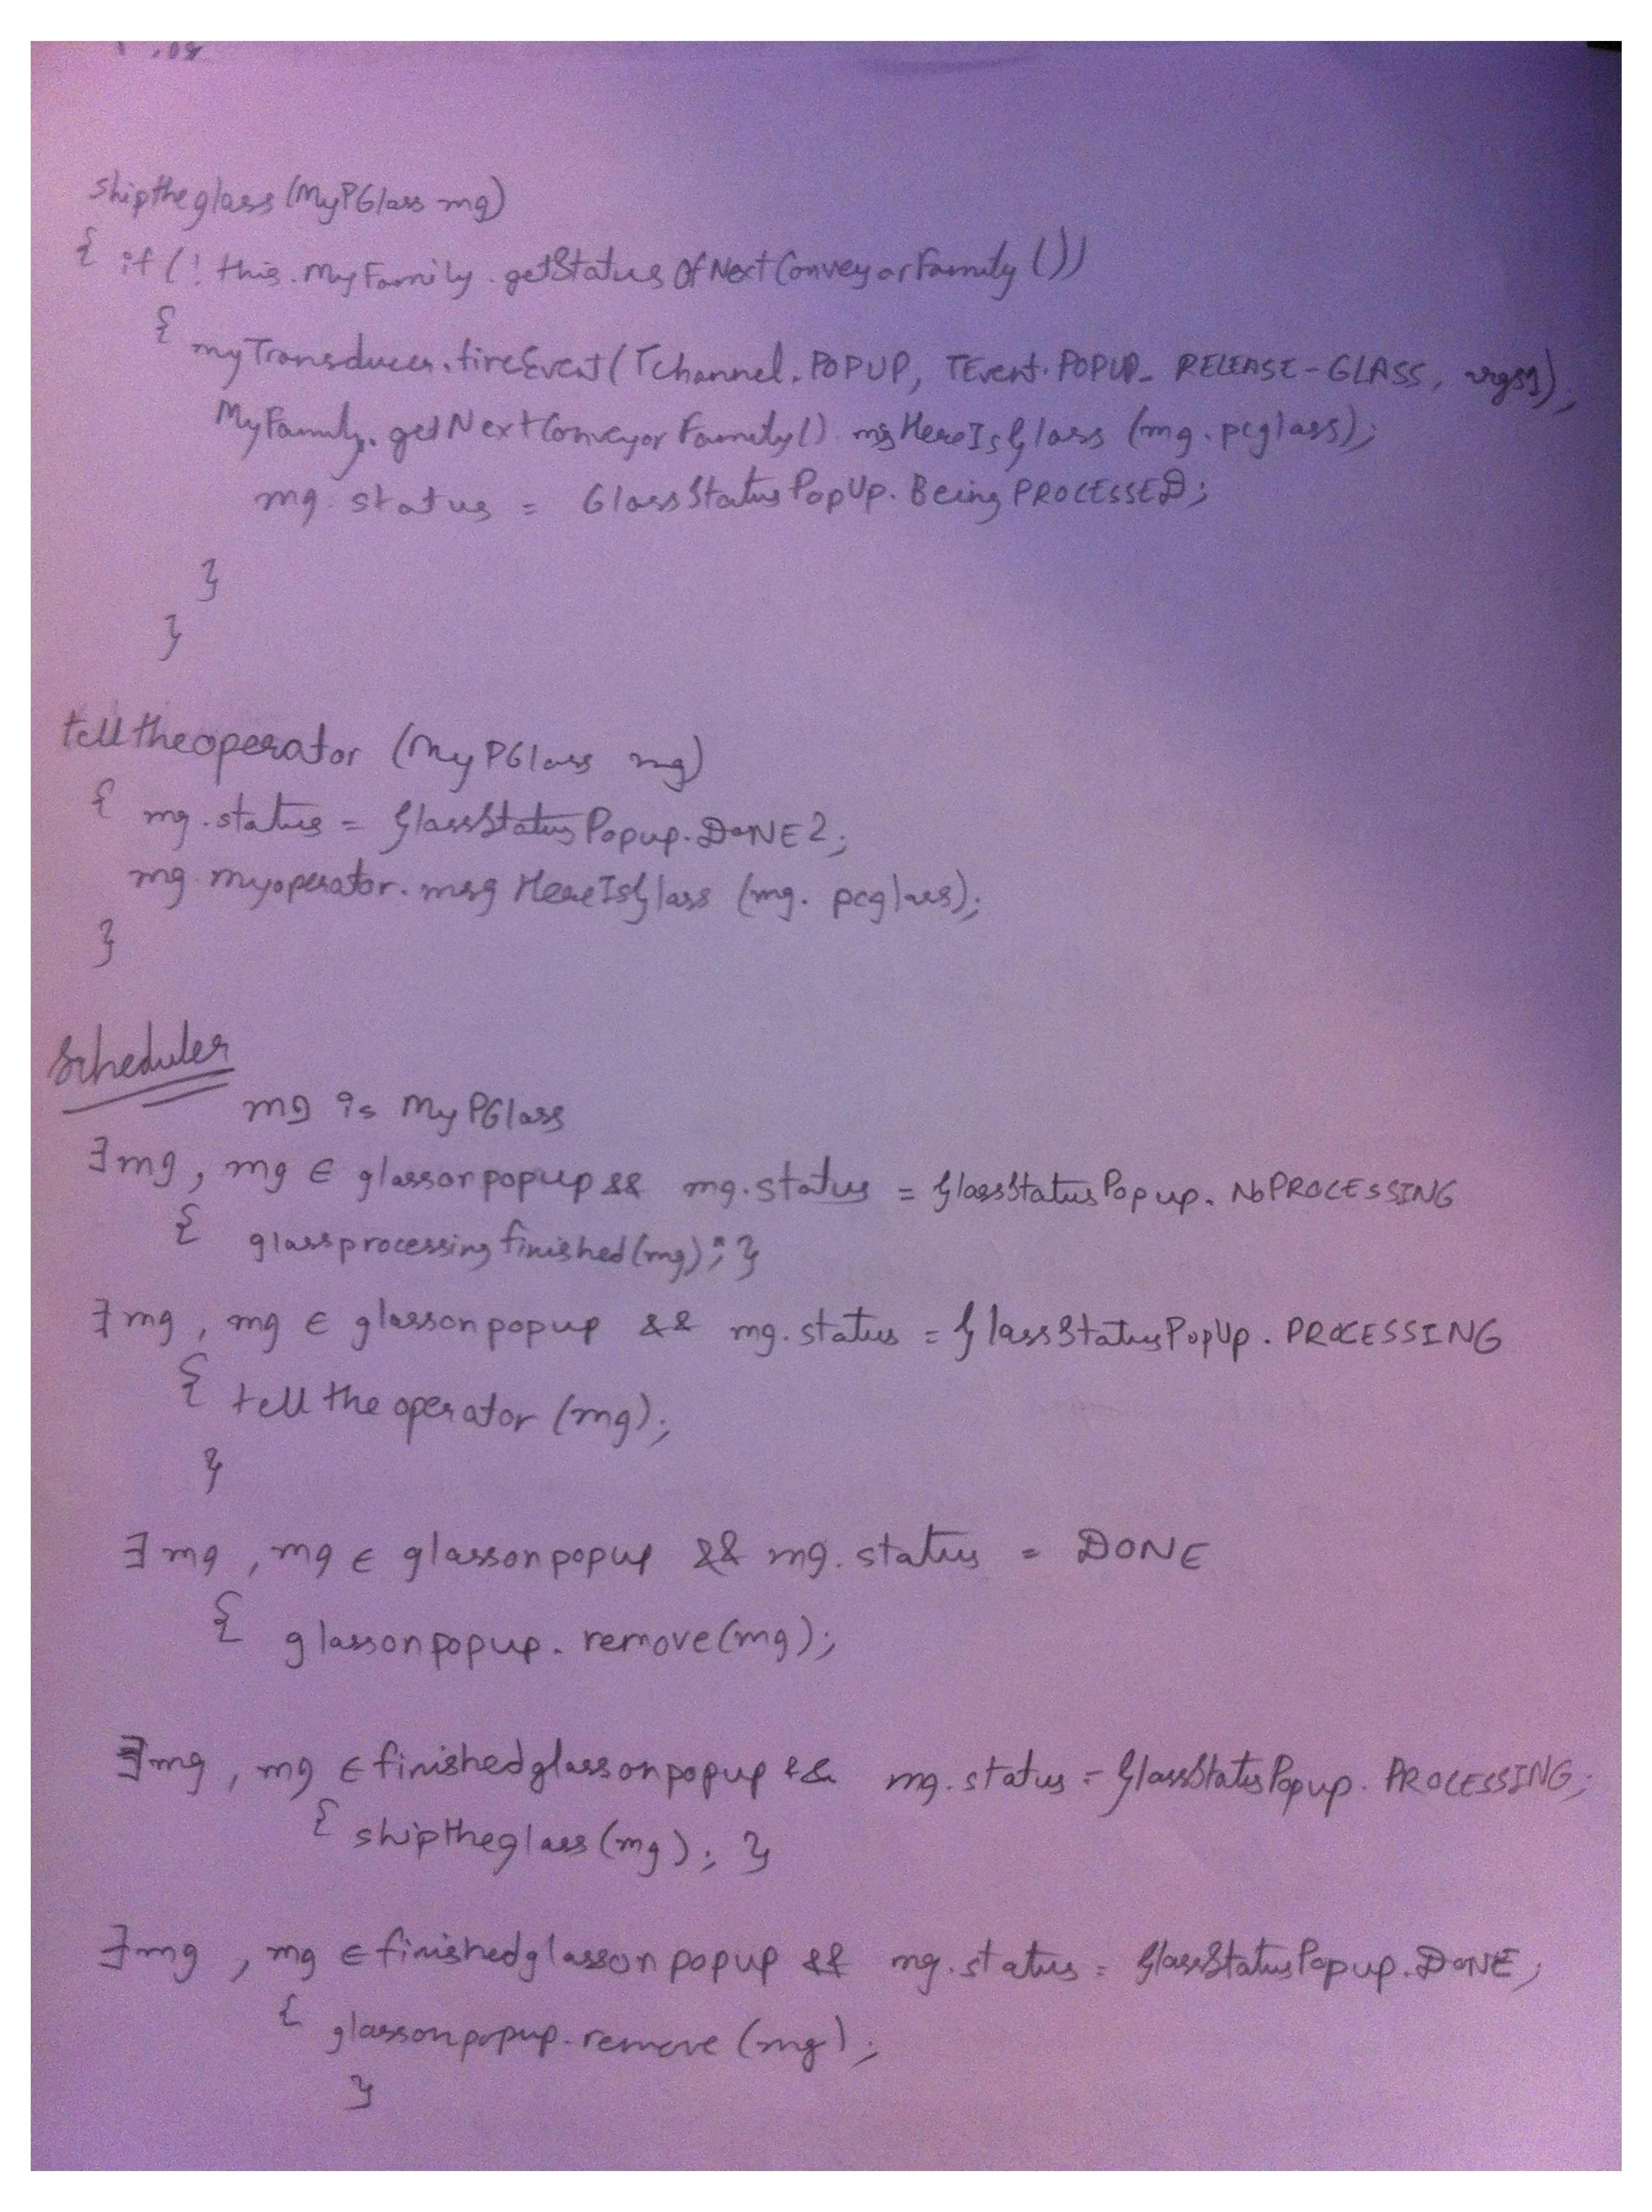 shiptheglass (MyPGlass mg)
{ if (! this.MyFamily.getStatusOfNextConveyorFamily ())
{ myTransducer.fireEvent(TChannel.POPUP, TEvent.POPUP_RELEASE-GLASS, args1);
MyFamily.getNextConveyorFamily().msgHereIsGlass (mg.pcglass);
mg.status = GlassStatusPopUp.BeingPROCESSED;
}
}
telltheoperator (MyPGlass mg)
{ mg.status = GlassStatusPopup.DONE2;
mg.myoperator.msgHereIsGlass (mg.pcglass);
}
Scheduler
mg is MyPGlass
∃ mg, mg ∈ glassonpopup && mg.status = GlassStatusPopup.NoPROCESSING
{ glassprocessingfinished(mg); }
∃ mg, mg ∈ glassonpopup && mg.status = GlassStatusPopUp.PROCESSING
{ telltheoperator (mg);
}
∃ mg, mg ∈ glassonpopup && mg.status = DONE
{ glassonpopup.remove(mg);
∃ mg, mg ∈ finishedglassonpopup && mg.status = GlassStatusPopup.PROCESSING;
{ shiptheglass(mg); }
∃ mg, mg ∈ finishedglassonpopup && mg.status = GlassStatusPopup.DONE;
{ glassonpopup.remove (mg);
}